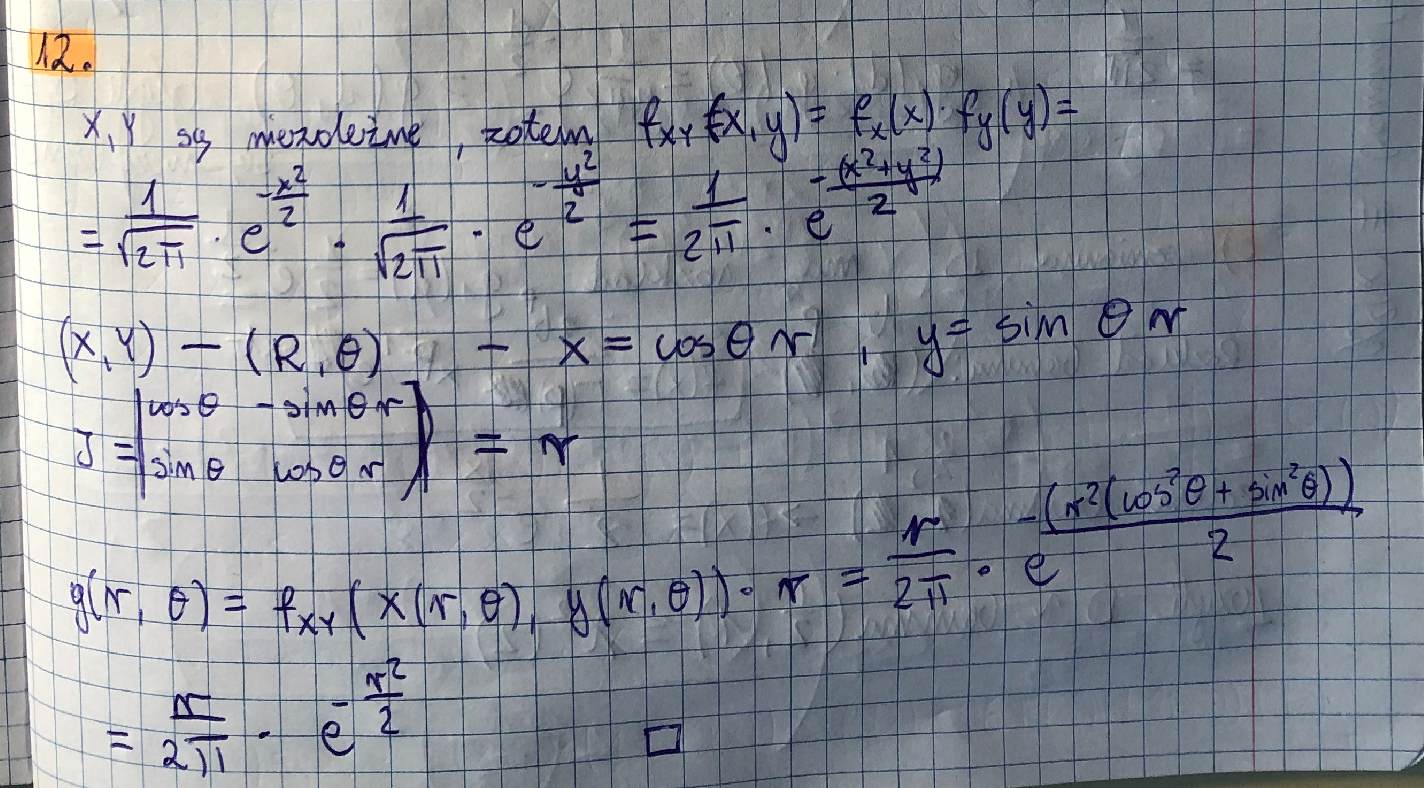 12.
X, Y są niezależne, zatem f_{XY}(x, y) = f_x(x) · f_y(y) =
= \frac{1}{\sqrt{2π}} · e^{-\frac{x^2}{2}} · \frac{1}{\sqrt{2π}} · e^{-\frac{y^2}{2}} = \frac{1}{2π} · e^{-\frac{(x^2+y^2)}{2}}
(X, Y) — (R, θ) — x = cosθ r, y = sin θ r
J = \begin{vmatrix} cosθ & -sinθ r \\ sinθ & cosθ r \end{vmatrix} = r
g(r, θ) = f_{XY}(x(r, θ), y(r, θ)) · r = \frac{r}{2π} · e^{-\frac{(r^2(cos^2θ + sin^2θ))}{2}}
= \frac{r}{2π} · e^{-\frac{r^2}{2}} □